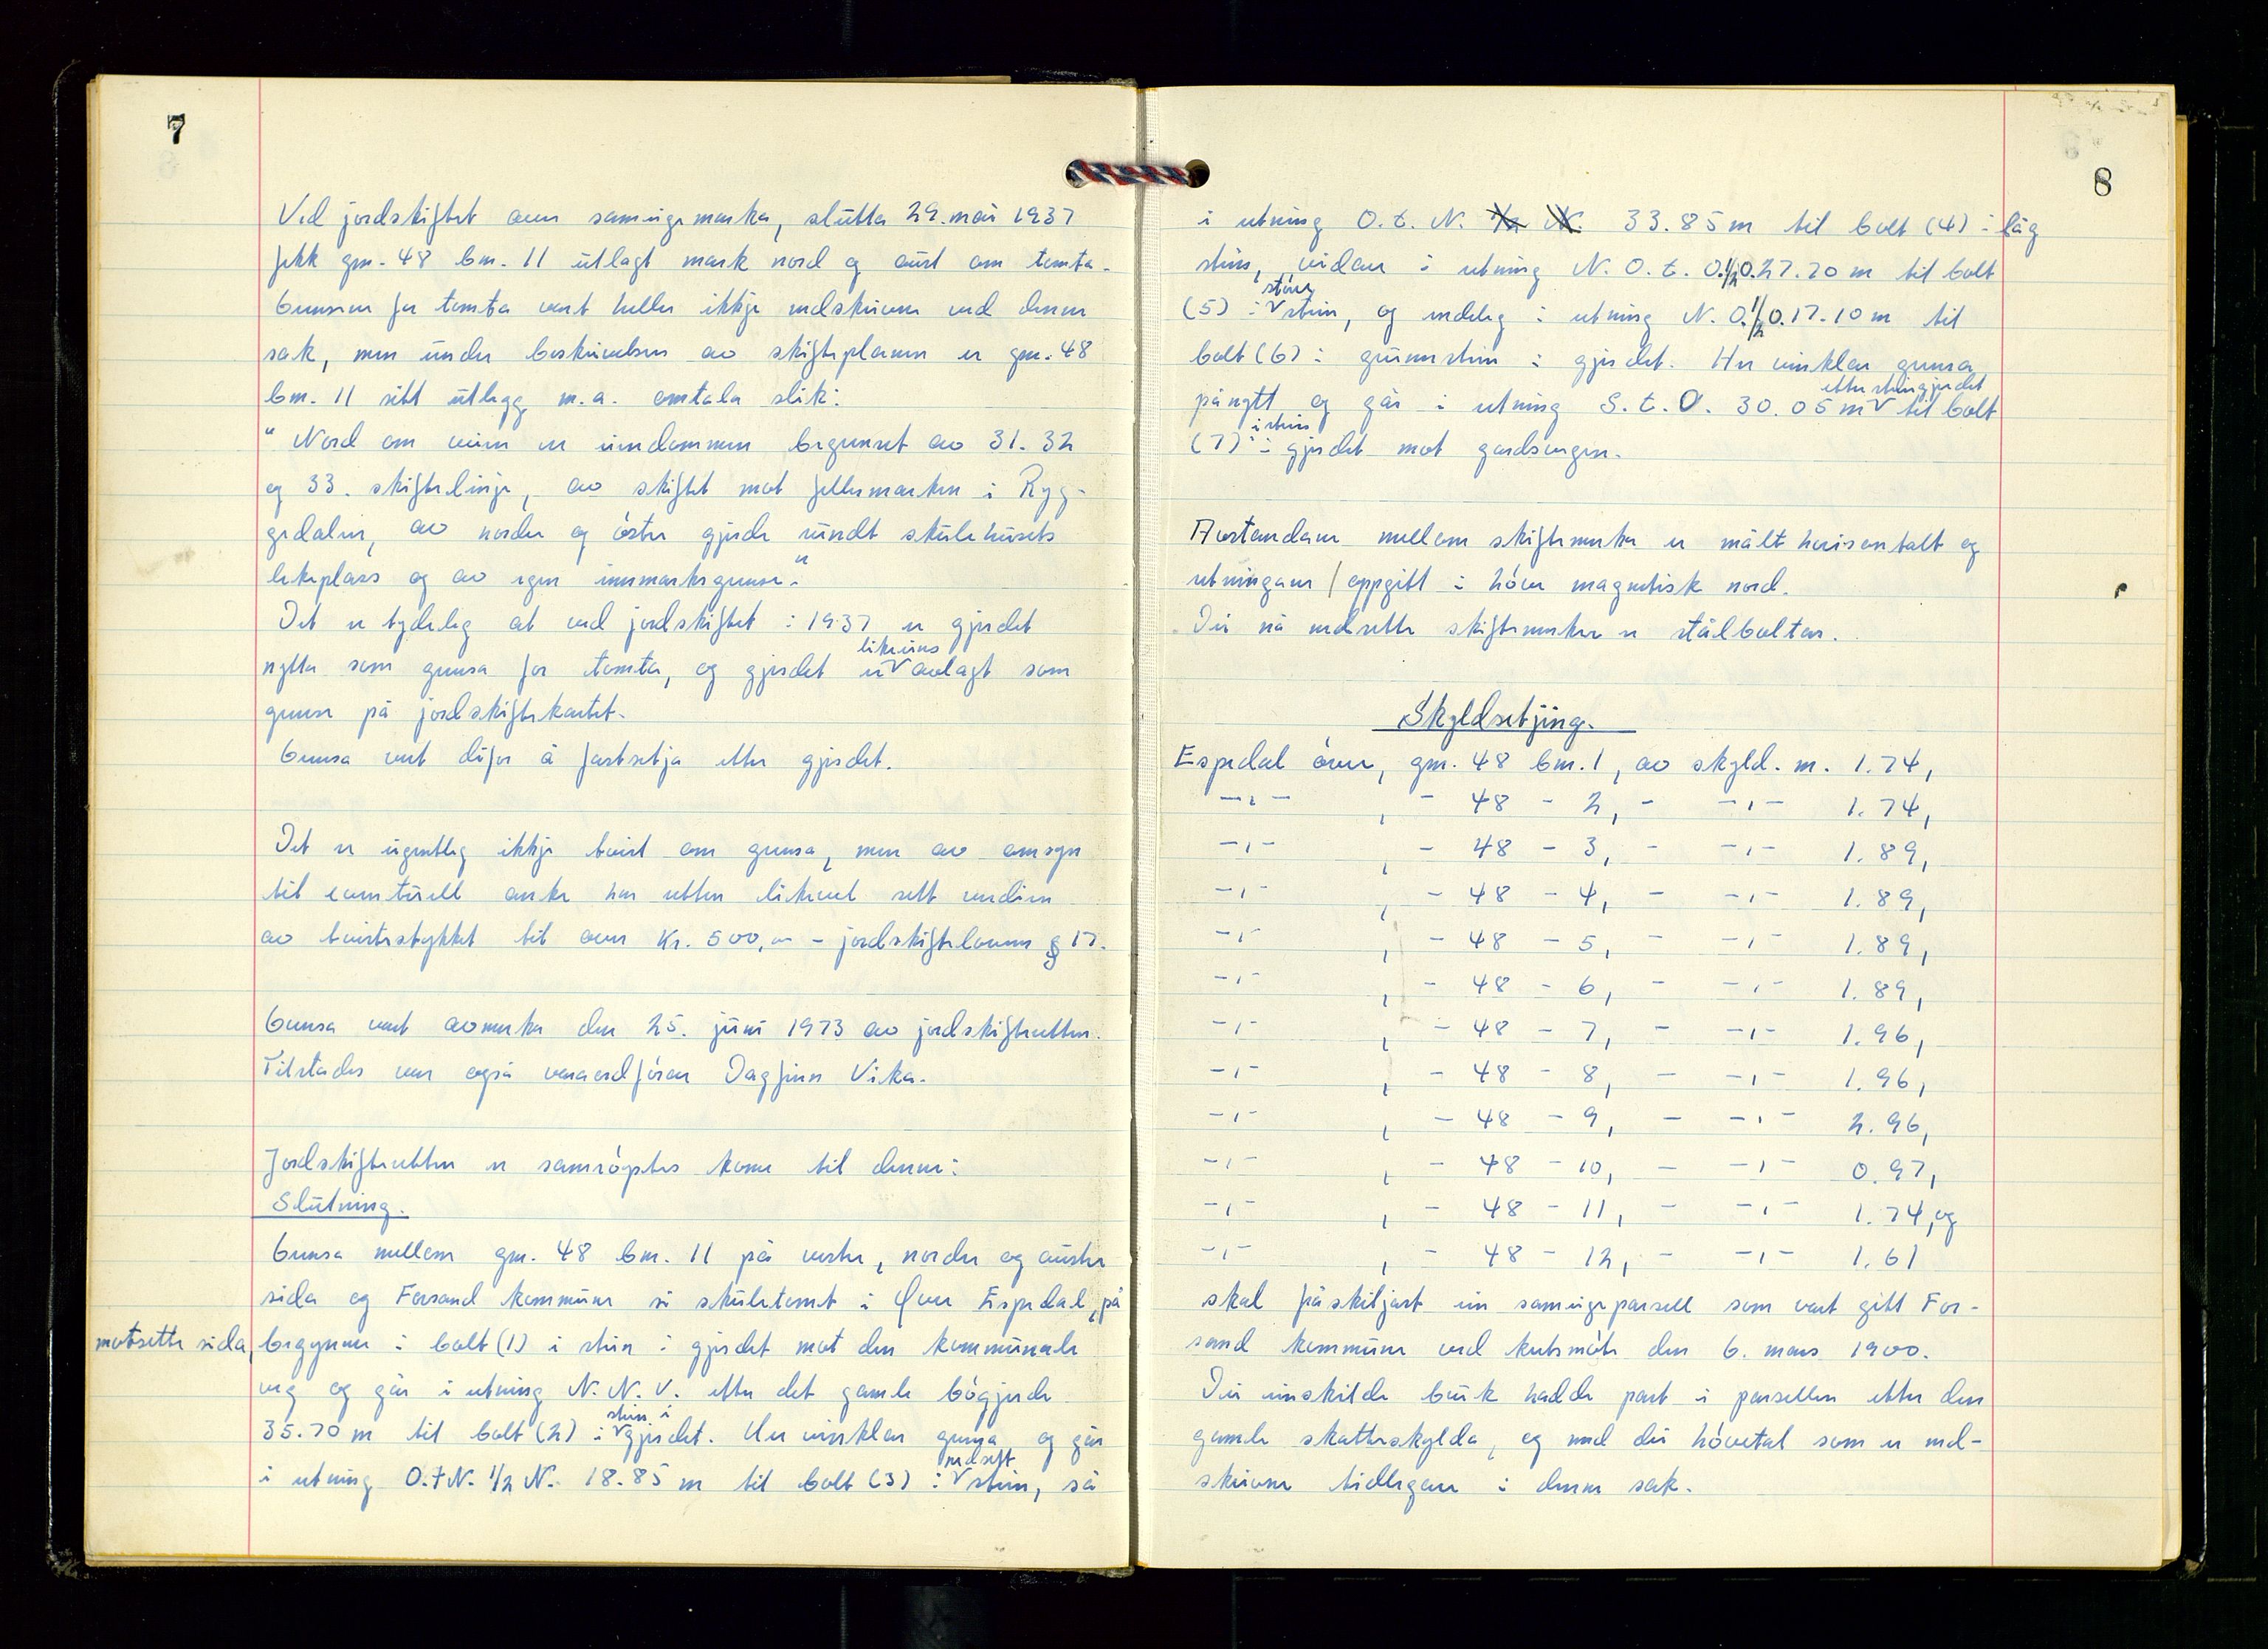 7
Ved jordskiftet over sameigemarka, slutta 29. mai 1937
fekk gnr. 48 bnr. 11 utlagt mark nord og aust om tomta.
Grensene for tomta vart heller ikkje nedskrivne ved denne
sak, men under beskrivelsen av skifteplanen er gnr. 48
bnr. 11 sitt utlegg m.a. omtala slik:
" Nord om veien er eiendommen begrenset av 31. 32
og 33. skiftelinje, av skiftet mot fellesmarken i Ryg-
gedalen, av nordre og østre gjerde rundt skulehusets
lekeplass og av egen innmarksgrense."
Det er tydeleg at ved jordskiftet i 1937 er gjerdet
likeeins
nytta som grensa for tomta, og gjerdet er V avlagt som
grense på jordskiftekartet.
Grensa vert difor å fastsetja etter gjerdet.
Det er eigentleg ikkje tvist om grensa, men av omsyn
til eventuell anke har retten likevel sett verdien
av tvistestykket til over Kr. 500,oo - jordskiftelovens § 17.
Grensa vart avmerka den 25. juni 1973 av jordskifteretten.
Tilstades var også varaordførar Dagfinn Vika.
Jordskifteretten er samrøystes kome til denne:
Slutning.
Grensa mellom gnr. 48 bnr. 11 på vestre, nordre og austre
sida og Forsand kommune si skuletomt i Øvre Espedal, på
motsette sida, begynner i bolt (1) i stein i gjerdet mot den kommunale
veg og går i retning N. N. V. etter det gamle bøgjerde
stein i
35.70 m til bolt (2) i V gjerdet. Her vinklar grensa og går
nedsett
i retning O. t N. 1/2 N. 18.85 m til bolt (3) i V stein, så
8
i retning O. t. N. 1/2 N. 33.85 m til bolt (4) i låg
stein, vidare i retning N. O. t. O. 1/2 O. 27.20 m til bolt
stor
(5) i V stein, og endeleg i retning N. O. 1/2 O. 17.10 m til
bolt (6) i grunnstein i gjerdet. Her vinklar grensa
etter steingjerdet
på nytt og går i retning S. t. O. 30.05 m V til bolt
i stein
(7) i gjerdet mot gardsvegen.
Avstandane mellom skiftemerka er målt horisontalt og
retningane / oppgitt i høve magnetisk nord.
Dei nå nedsette skiftemerker er stålboltar.
Skyldsetjing.
Espedal øvre, gnr. 48 bnr. 1, av skyld. m. 1.74,
-"- , - 48 - 2, - -"- 1.74,
-"- , - 48 - 3, - -"- 1.89,
-"- , - 48 - 4, - -"- 1.89,
-"- , - 48 - 5, - -"- 1.89,
-"- , - 48 - 6, - -"- 1.89,
-"- , - 48 - 7, - -"- 1.96,
-"- , - 48 - 8, - -"- 1.96,
-"- , - 48 - 9, - -"- 2.96,
-"- , - 48 - 10, - -"- 0.97,
-"- , - 48 - 11, - -"- 1.74, og
-"- , - 48 - 12, - -"- 1.61
skal fråskiljast ein sameigeparsell som vart gitt For-
sand kommune ved kretsmøte den 6. mars 1900.
Dei einskilde bruk hadde part i parsellen etter den
gamle skatteskylda, og med dei høvetal som er ned-
skrivne tidlegare i denne sak.